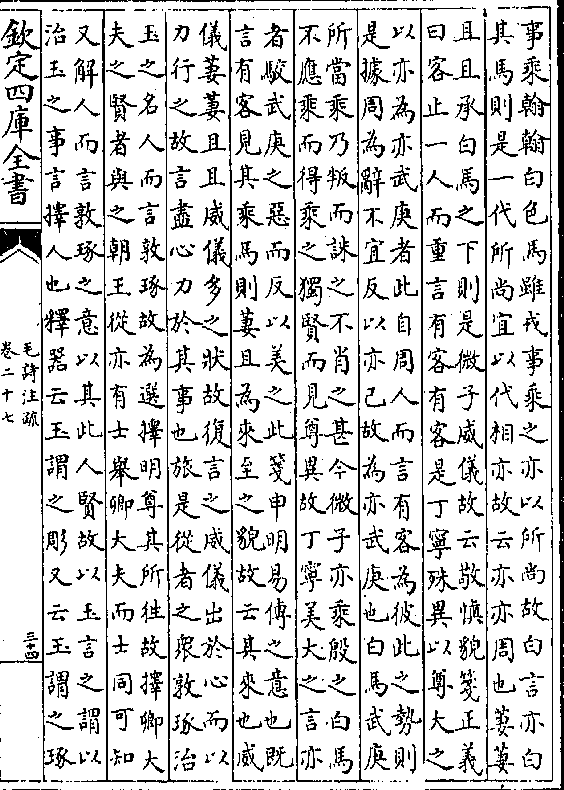 事乘翰翰白色馬雖戎事乘之亦以所尚故白言亦白
其馬則是一代所尚宜以代相亦故云亦亦周也萋萋
且且承白馬之下則是微子威儀故云敬慎貌箋正義
曰客止一人而重言有客有客是丁寧殊異以尊大之
以亦為亦武庚者此自周人而言有客為彼此之勢則
是據周為辭不宜反以亦己故為亦武庚也白馬武庚
所當乘乃叛而誅之不肖之甚今微子亦乘殷之白馬
不應乘而得乘之獨賢而見尊異故丁寧美大之言亦
者駮武庚之惡而反以美之此箋申明易傳之意也既
言有客見其乘馬則萋且為來至之貌故云其來也威
儀萋萋且且威儀多之狀故復言之威儀出於心而以
力行之故言盡心力於其事也旅是從者之衆敦琢治
玉之名人而言敦琢故為選擇明尊其所往故擇卿大
夫之賢者與之朝王從亦有士舉卿大夫而士同可知
又解人而言敦琢之意以其此人賢故以玉言之謂以
治玉之事言擇人也釋器云玉謂之彫又云玉謂之琢
欽定四庫全書
毛詩注疏
卷二十七
三十四